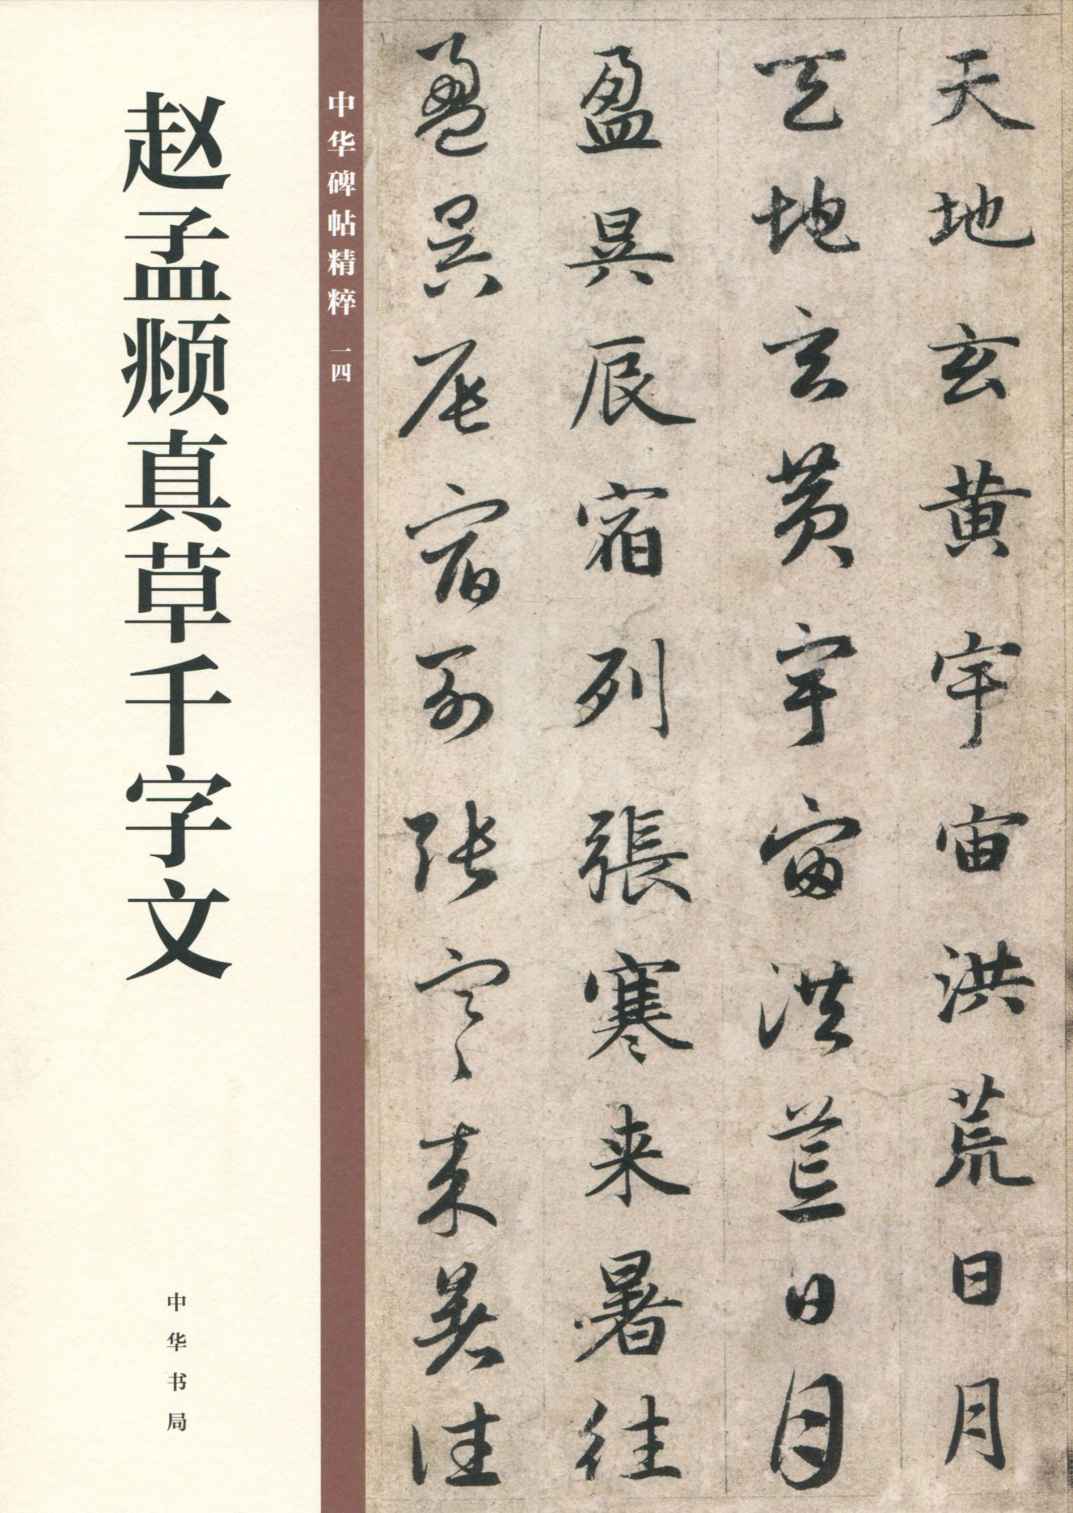 赵孟頫真草千字文
中华书局
中华碑帖精粹 一四
天地玄黄宇宙洪荒日月
天地玄黄宇宙洪荒日月
盈昃辰宿列張寒来暑往
盈昃辰宿列張寒来暑往